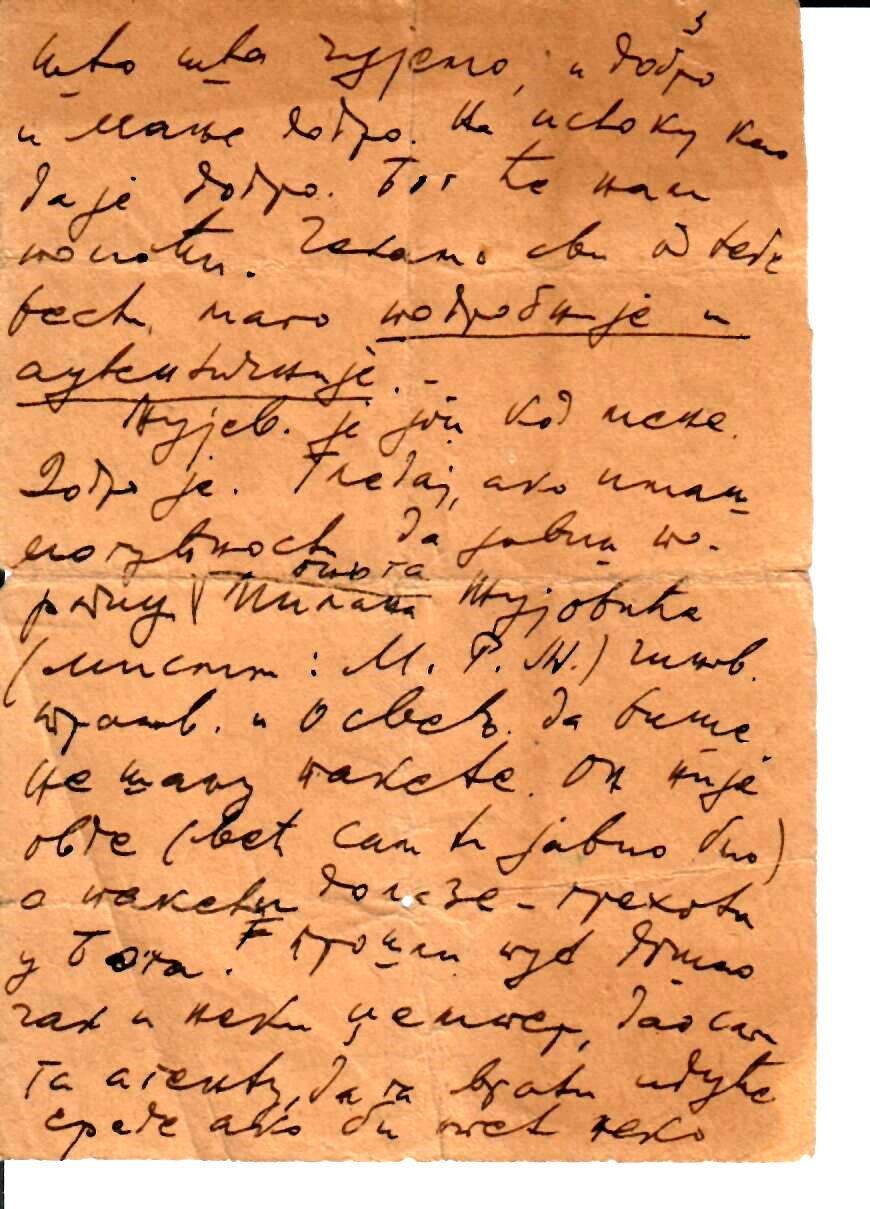 3
што шта чујемо, и добро
и мање добро. На истоку као
да је добро. Бог ће нам
помоћи. Чекамо сви од тебе
вести, мало подробније и
аутентичније. –
Жујев. је још код мене.
Добро је. Гледај, ако имаш
могућности да јавиш по-
родици Милана Жујовића
(мислим: М. Р. Ж.) чинов.
и Освећ. да више
не шаљу пакете. Он није
овде (већ сам ти јавио био)
а пакети долазе – грехота
у Бога. Прошли пут дошао
чак и неки џемпер, дао сам
га агенту, да га врати идуће
среде ако би опет неко